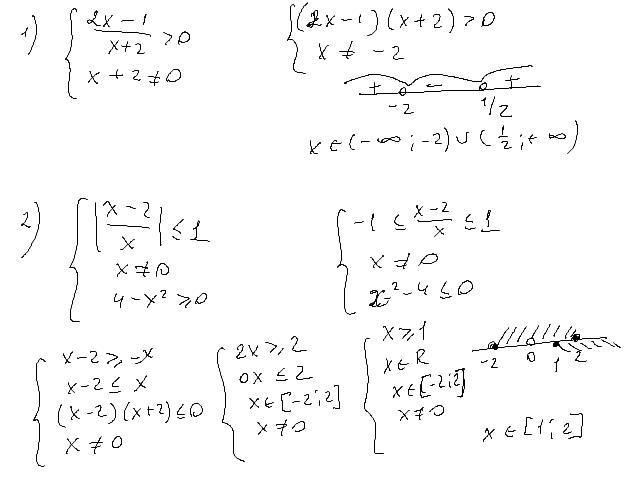 1) { (2x-1)/(x+2) > 0
x + 2 ≠ 0
{ (2x-1)(x+2) > 0
x ≠ -2
+ - +
-2 1/2
x ∈ (-∞; -2) ∪ (1/2; +∞)
2) { |(x-2)/x| ≤ 1
x ≠ 0
4 - x² ≥ 0
{ -1 ≤ (x-2)/x ≤ 1
x ≠ 0
x² - 4 ≤ 0
{ x-2 ≥ -x
x-2 ≤ x
(x-2)(x+2) ≤ 0
x ≠ 0
{ 2x ≥ 2
0x ≤ 2
x ∈ [-2; 2]
x ≠ 0
{ x ≥ 1
x ∈ R
x ∈ [-2; 2]
x ≠ 0
-2 0 1 2
x ∈ [1; 2]